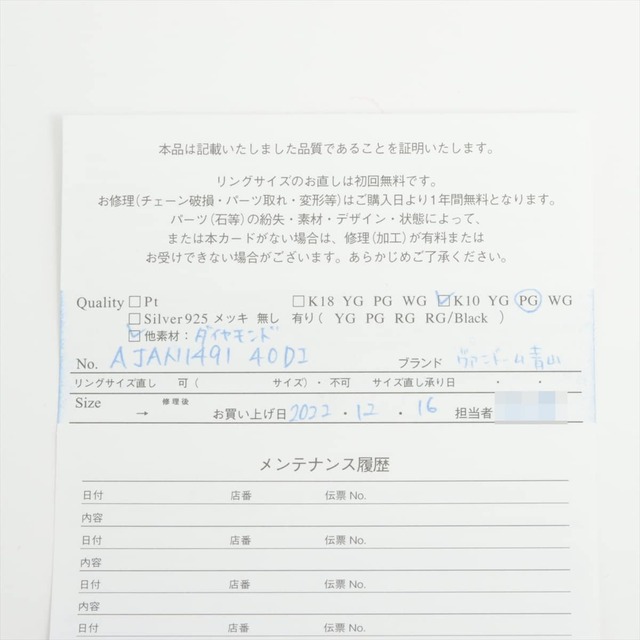 本品は記載いたしました品質であることを証明いたします。
リングサイズのお直しは初回無料です。
お修理(チェーン破損・パーツ取れ・変形等)はご購入日より1年間無料となります。
パーツ(石等)の紛失・素材・デザイン・状態によって、
または本カードがない場合は、修理(加工)が有料または
お受けできない場合がございます。あらかじめご了承ください。
Quality □Pt □K18 YG PG WG ☑K10 YG PG WG
□Silver925 メッキ 無し 有り( YG PG RG RG/Black )
☑他素材:ダイヤモンド
No. AJAN1491 40DI ブランド ヴァンドーム青山
リングサイズ直し 可( サイズ)・不可 サイズ直し承り日 ・ ・
Size → 修理後 お買い上げ日 2022・12・16 担当者
メンテナンス履歴
日付 店番 伝票 No.
内容
日付 店番 伝票 No.
内容
日付 店番 伝票 No.
内容
日付 店番 伝票 No.